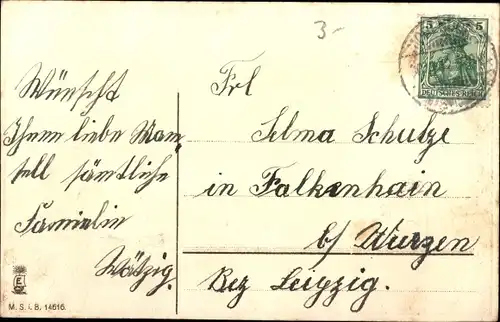 3-
5 5
DEUTSCHES REICH
Wünscht
Ihnen liebe Mam„
sell sämtliche
Familie
Wätzig.
Frl
Selma Schulze
in Falkenhain
b/ Wurzen
Bez Leipzig.
M. S. i. B. 14616.